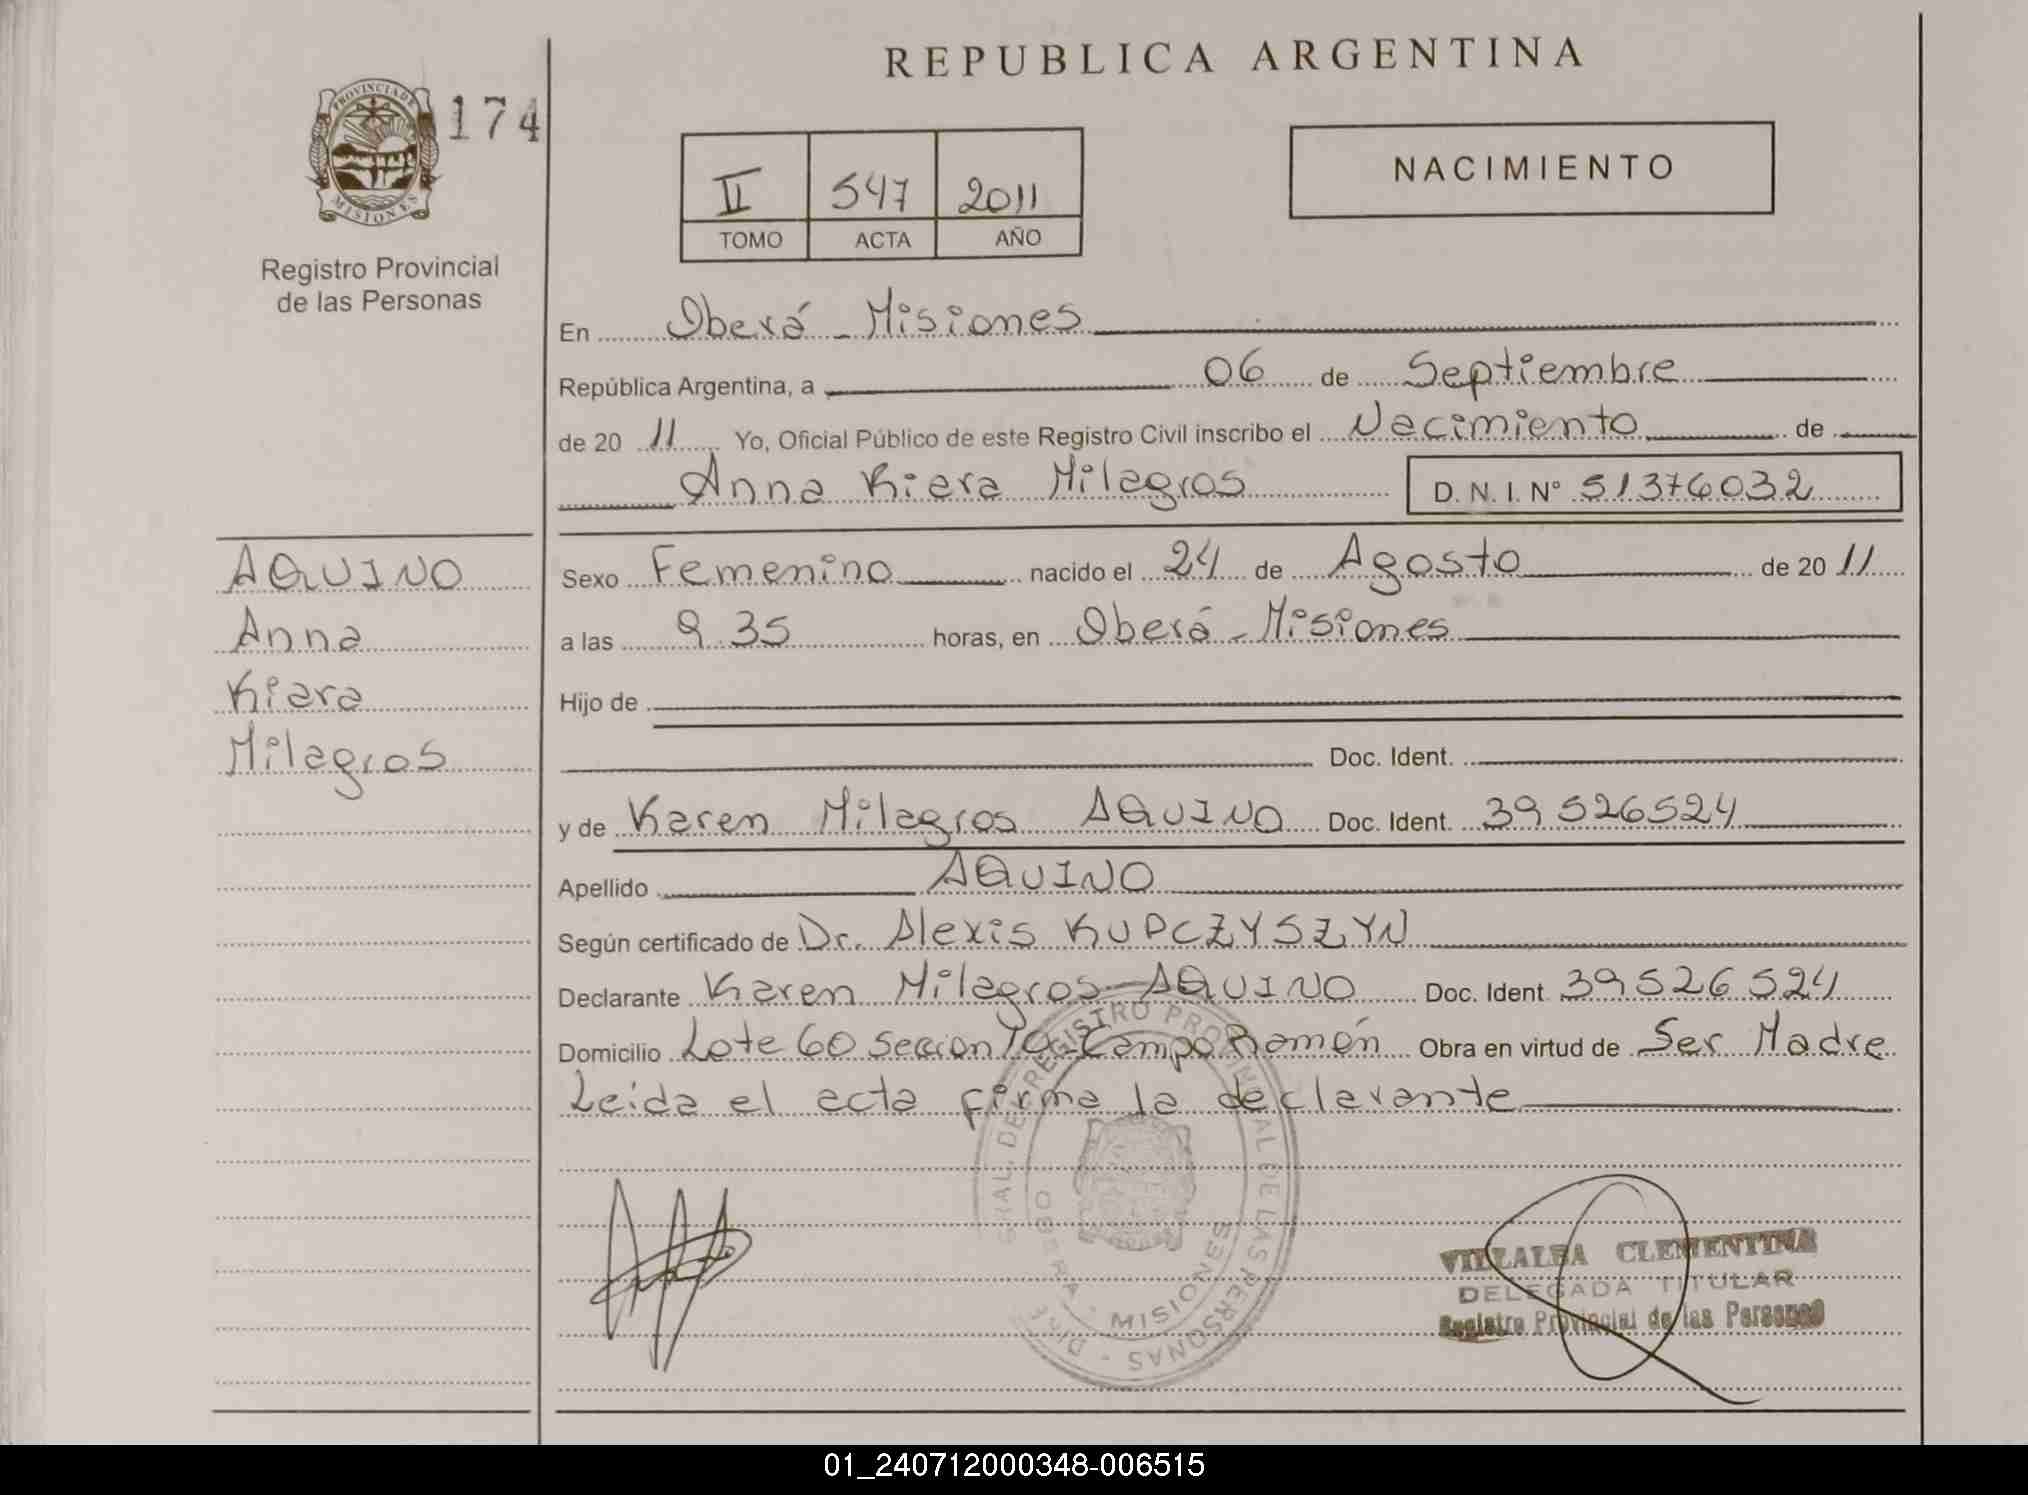 REPUBLICA ARGENTINA
PROVINCIA DE
MISIONES
174
Registro Provincial
de las Personas
II 547 2011
TOMO ACTA AÑO
NACIMIENTO
En Oberá - Misiones
República Argentina, a 06 de Septiembre
de 20 11 Yo, Oficial Público de este Registro Civil inscribo el Nacimiento de
Anna Kiara Milagros D. N. I. Nº 51376032
AQUINO
Anna
Kiara
Milagros
Sexo Femenino nacido el 24 de Agosto de 20 11
a las 9.35 horas, en Oberá - Misiones
Hijo de
Doc. Ident.
y de Karen Milagros AQUINO Doc. Ident. 39526524
Apellido AQUINO
Según certificado de Dr. Alexis KUPCZYSZYN
Declarante Karen Milagros AQUINO Doc. Ident 39526524
Domicilio Lote 60 Seccion Campo Ramón Obra en virtud de Ser Madre
Leida el acta firma la declarante
GRAL. DEL REGISTRO PROVINCIAL DE LAS PERSONAS
OBERA - MISIONES
VILLALBA CLEMENTINA
DELEGADA TITULAR
Registro Provincial de las Personas
01_240712000348-006515